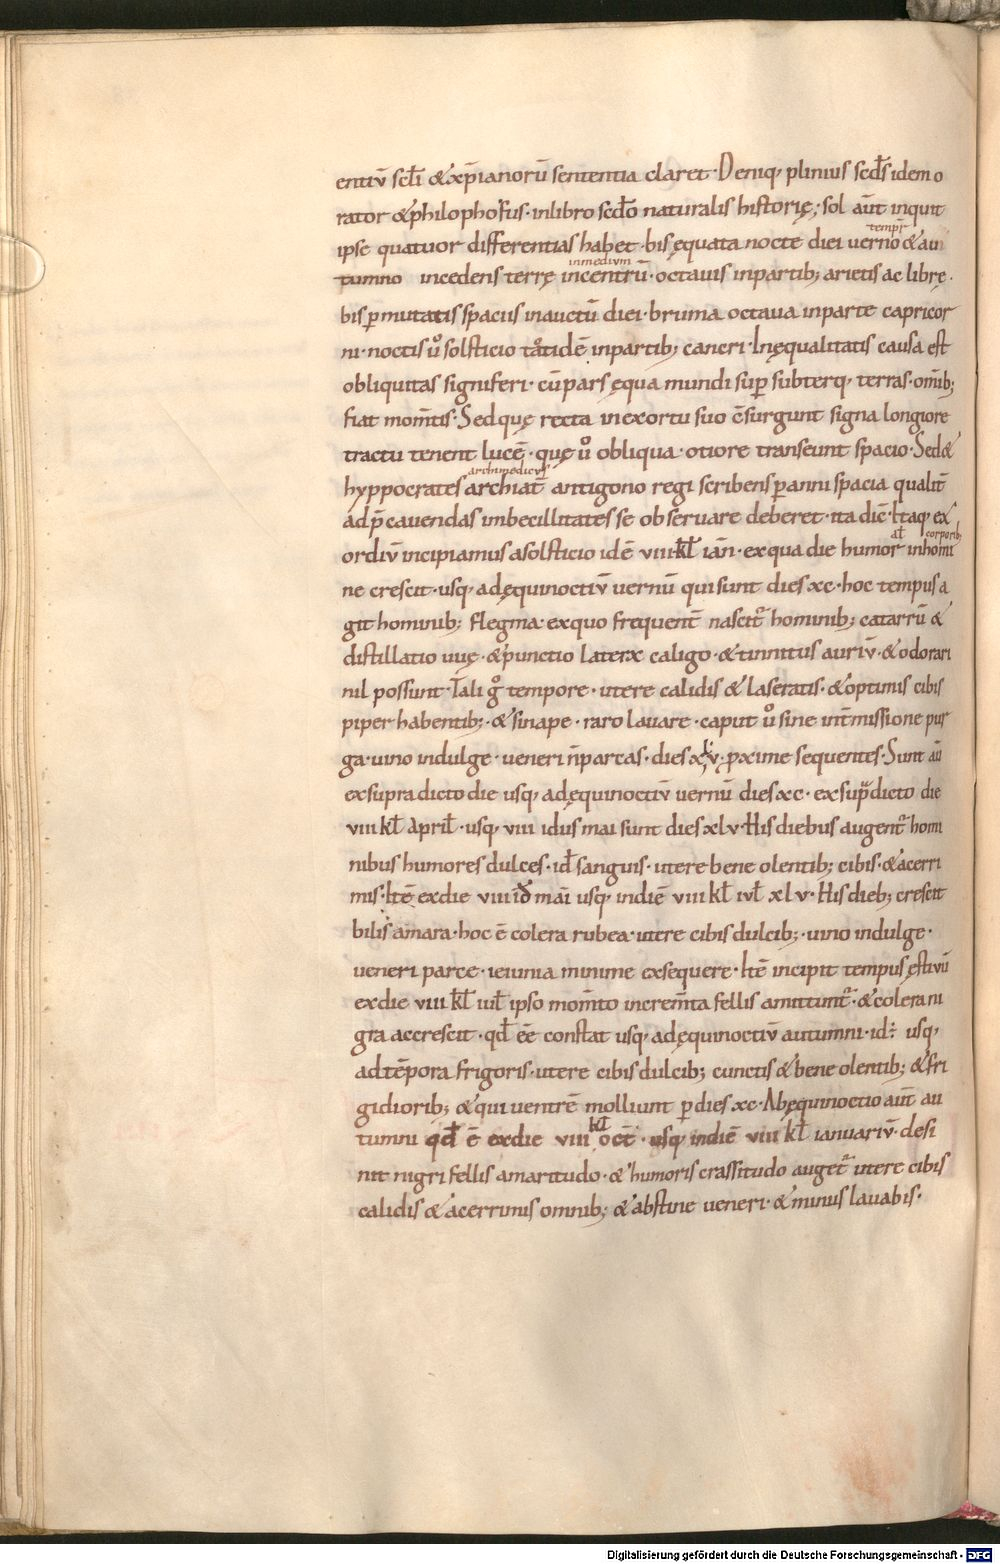 entiū scłi &xp̄ianorū sententia claret· Deniq; plinius scds̄ idem o
rator &philophofus· inlibro scdo̅ naturalis historię; sol aut̄ inquit
ipse quatuor differentias habet· bis ęquata nocte diei verno & au
tempr̄
tumno incedens terrę incentrū· octauis inpartib; arietis ac librę·
inmedium
bis ꝑmutatis spaciis inauctū diei· bruma octaua inparte capricor
ni· noctis ů solsticio totidē inpartib; cancri· Inęqualitatis causa est
obliquitas signiferi· cū pars ęqua mundi suꝑ subterq; terras· omīb;
fiat mom̄tis· Sed quę recta inexortu suo c̄surgunt signa longiore
tractu tenent lucē· quę ů obliqua· otiore transeunt spacio· Sed &
hyppocrates archiat̄ antigono regi scribens ꝑanni spacia qualit̄
archimedicus
adp̄cauendas imbecillitates se obseruare deberet· ita dic̄· Itaq; ex
ordiū incipiamus asolsticio idē viii kł ian̄· exqua die humor inhomi
ał corporib;
ne crescit· usq; adęquinoctiū vernū qui sunt dies xc· hoc tempus a
git hominib; flegma· exquo frequent̄ nascit᷑ hominib; catarrū &
distillatio uuę· &punctio laterx caligo· &tinnitus auriū· &odorari
nil possunt· Tali g̊ tempore· utere calidis & laseratis· &optimis cibis
piper habentib; · & sinape· raro lauare· caput ů sine int̄missione pur
ga· uino indulge· ueneri n̄parcas· dies xlv· proxime sequentes· Sunt au̅
exsupradicto die usq; adęquinoctiū uernū dies xc· exsupͣdicto die
viii kł april̄· usq; viii idus mai sunt dies xlv· His diebus augent᷑ homi
nibus humores dulces· id̄ sanguis· utere bene olentib; cibis· &acerri
mis· Itē exdie viii id̄ mai usq; indiē viii kł iuł xlv· His dieb; crescit
bilis amara· hoc ē colera rubea· utere cibis dulcib; · uino indulge·
ueneri parce· ieiunia minime exsequere· Itē incipit tempus ęstiuū
exdie viii kł iuł ipso mom̄to increm̄ta fellis amittunt᷑· &colera ni
gra accrescit· qd̄ eē constat usq; adęquinoctiū autumni· id÷ usq;
ad tēpora frigoris· utere cibis dulcib; cunctis & bene olentib; & fri
gidiorib; & qui uentrē molliunt ꝑ dies xc· Abęquinoctio aut̄ au
tumni qd̄ ē exdie viii oct̄· usq; indiē viii kł ianuariū· desi
kł
nit nigri fellis amaritudo· & humoris crassitudo auget᷑ utere cibis
calidis & acerrimis omnib; & abstine ueneri· & minus lauabis·
Digitalisierung gefördert durch die Deutsche Forschungsgemeinschaft - DFG